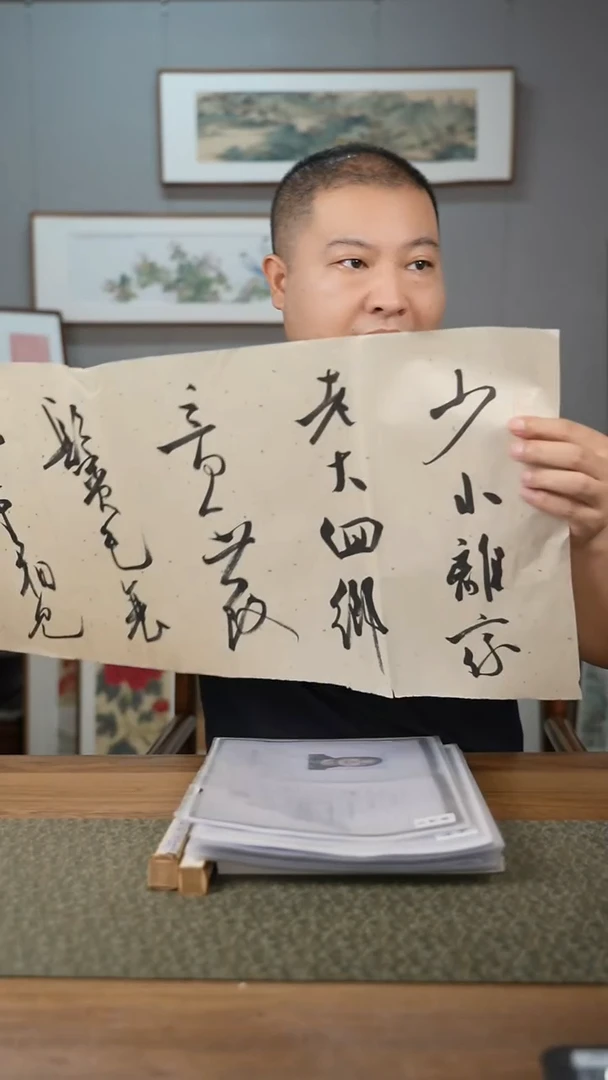 少小離家
老大囬鄉
音無改
鬢毛衰
相見